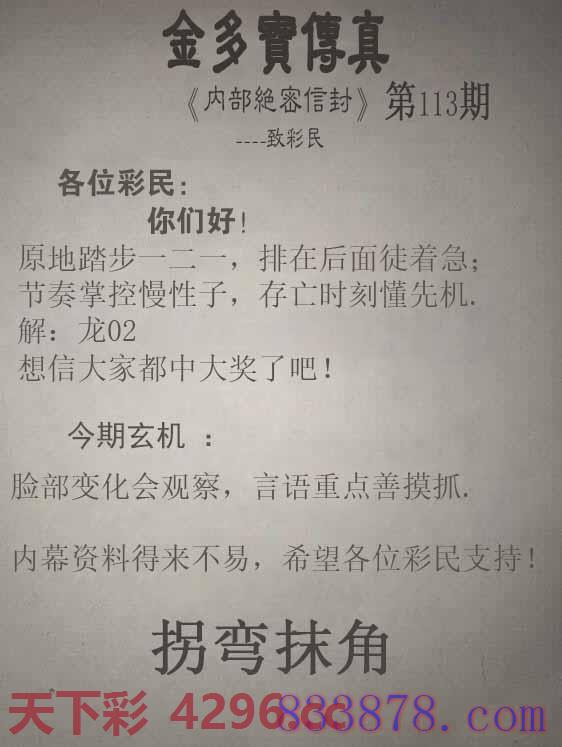 金多寶傳真
《内部絕密信封》第113期
----致彩民
各位彩民:
你们好!
原地踏步一二一，排在后面徒着急;
节奏掌控慢性子，存亡时刻懂先机.
解：龙02
想信大家都中大奖了吧!
今期玄机 ：
脸部变化会观察，言语重点善摸抓.
内幕资料得来不易，希望各位彩民支持!
拐弯抹角
天下彩 4296.cc
883878.com